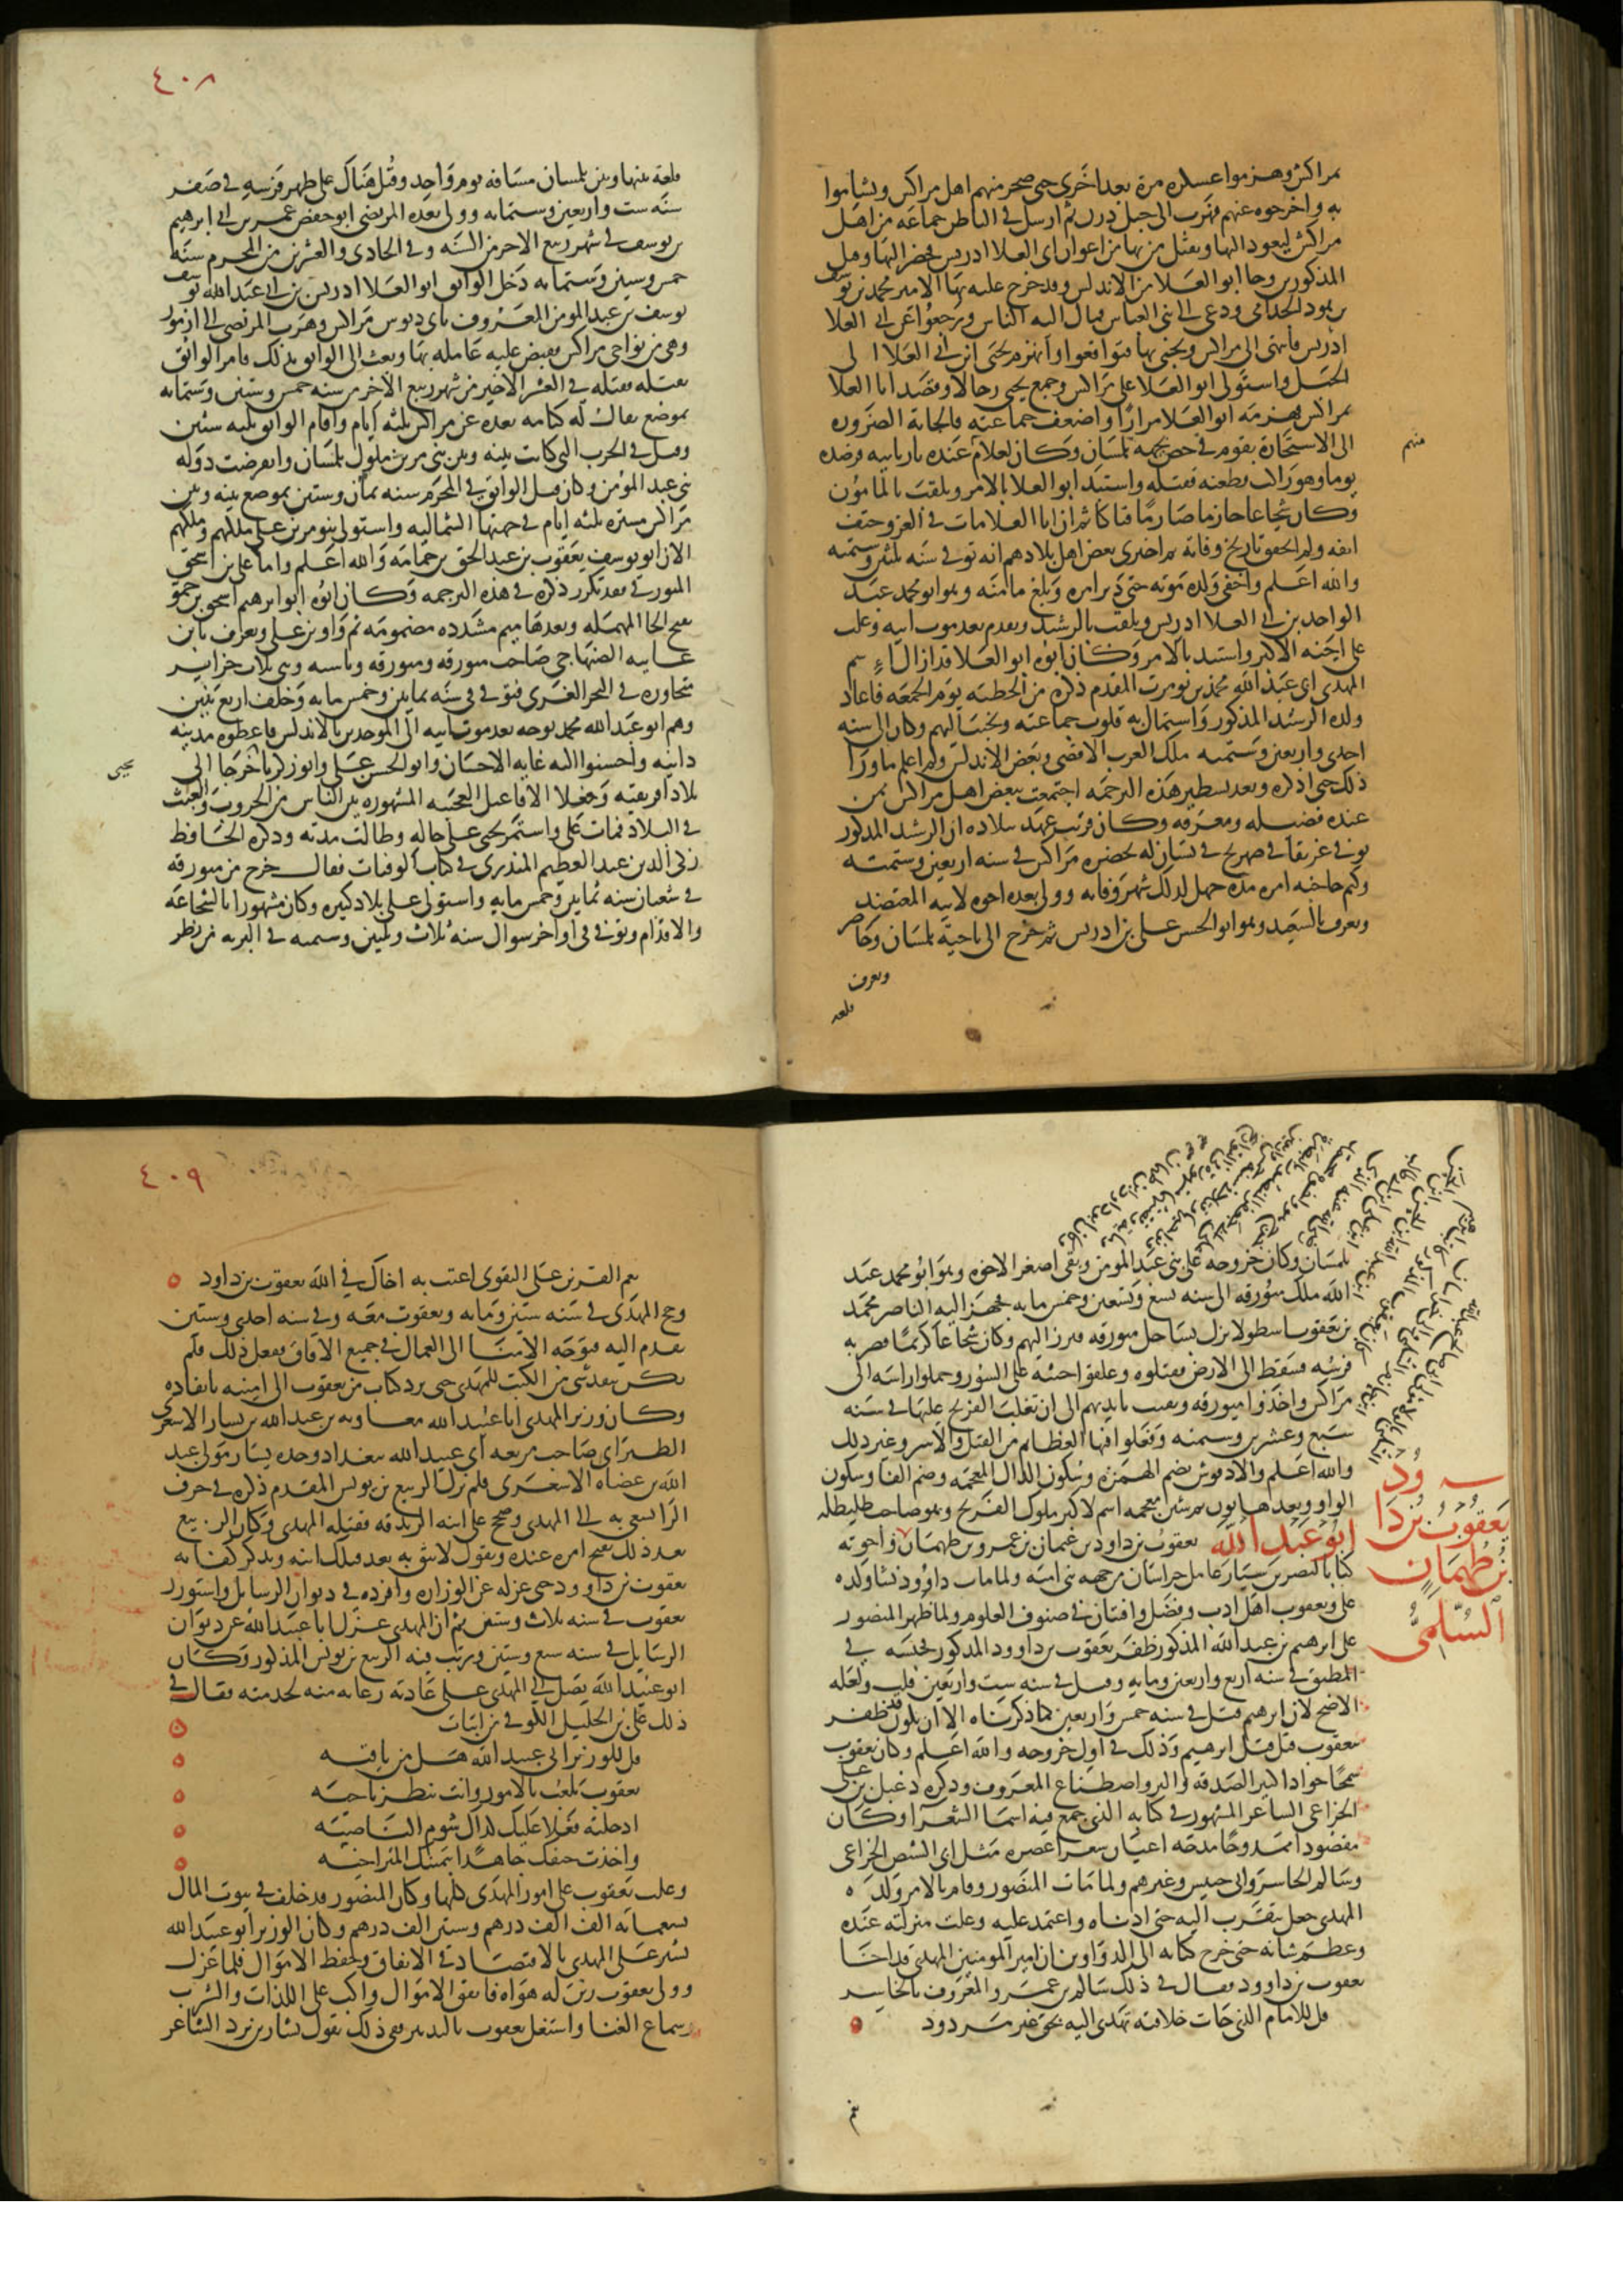 مراكش وهزموا عسكره مرة بعد اخرى حتى ضجر منهم اهل مراكش وتشاءموا
به واخرجوه عنهم فهرب الى جبل درن ثم ارسل في الباطن جماعة من اهل
مراكش ليعود اليها ويقتل من بها من اعوان ابى العلا ادريس فحضر اليها وقتل
المذكورين وجا ابو العلا من الاندلس وقد خرج عليه بها الامير محمد بن يوسف
بن هود الجذامي ودعى الى بنى العباس فمال اليه الناس ورجعوا عن ابى العلا
ادريس فانتهى الى مراكش ويحيى بها فتواقعوا وانهزم يحيى من ابى العلا الى
الجبل واستولى ابو العلا على مراكش وجمع يحيى رجالا وقصد ابا العلا
بمراكش فهزمه ابو العلا مرارا واضعف جماعته فالجاته الضروره
الى الاستجارة بقوم في حصن بجهة تلمسان وكان لغلام عنده ثار بابيه فرصده
منهم
يوما وهو راكب فطعنه فقتله واستبد ابو العلا بالامر وتلقب بالمامون
وكان شجاعا حازما صارما فتاكا ثم ان ابا العلا مات في الغزو حتف
انفه ولم احقق تاريخ وفاته ثم اخبرنى بعض اهل بلادهم انه توفى سنه ثلثين وستمئه
والله اعلم واخفى ولده موته حتى دبر امره وبلغ مامنه وهو ابو محمد عبد
الواحد بن ابى العلا ادريس وتلقب بالرشيد وتقدم بعد موت ابيه وغلب
على اخته الاكبر واستبد بالامر وكان ابوه ابو العلا قد ازال اسم
المهدى ابى عبد الله محمد بن تومرت المقدم ذكره من الخطبه يوم الجمعه فاعاد
ولده الرشيد المذكور واستمال به قلوب جماعته وتحبب اليهم وكان الى سنه
احدى واربعين وستمئه ملك الغرب الاقصى وبعض الاندلس ولم اعلم ماورا
ذلك حتى اذكره وبعد تسطير هذه الترجمه اجتمعت ببعض اهل مراكش ممن
عنده فضيله ومعرفه وكان قريب عهد ببلاده ان الرشيد المذكور
توفى غريقا في صهريج في بستان له بحضره مراكش في سنه اربعين وستمئه
وكتم حاجبه امره مدة جهل لذلك شهر وفاته وولى بعده اخوه لابيه المعتضد
ويعرف بالسعيد وهو ابو الحسن على بن ادريس ثم خرج الى ناحية تلمسان وحاصر
ويعرف
قلعه
٤٠٨
قلعة بينها وبين تلمسان مسافة يوم واحد وقتل هناك على ظهر فرسه في صفر
سنه ست واربعين وستمايه وولى بعده المرتضى ابو حفص عمر بن ابى ابرهيم
بن يوسف في شهر ربيع الاخر من السنه وفي الحادى والعشرين من المحرم سنه
خمس وستين وستمايه دخل الواثق ابو العلا ادريس بن ابى عبد الله يوسف
يوسف بن عبد المومن المعروف بابى دبوس مراكش وهرب المرتضى الى ازمور
وهى من نواحى مراكش فقبض عليه عامله بها وبعث الى الواثق بذلك فامر الواثق
بقتله فقتله في العشر الاخير من شهر ربيع الاخر من سنه خمس وستين وستمايه
بموضع يقال له كتامه بعده عن مراكش ثلثه ايام واقام الواثق ثلثه سنين
وقتل في الحرب التى كانت بينه وبين بنى مرين ملوك تلمسان وانقرضت دوله
بنى عبد المؤمن وكان قتل الواثق في المحرم سنه ثمان وستين بموضع بينه وبين
مراكش مسيرة ثلثه ايام في جهتها الشماليه واستولى بنو مرين على ملكهم وملكهم
الان ابو يوسف يعقوب بن عبد الحق بن حمامه والله اعلم واما على بن اسحق
الميورقى فقد تكرر ذكره في هذه الترجمه وكان ابوه ابو ابرهيم اسحق بن حمو
بفتح الحا المهمله وبعدها ميم مشدده مضمومه ثم واو بن على ويعرف بابن
غانيه الصنهاجى صاحب ميورقه ومنورقه ويابسه وهى ثلاث جزاير
متجاوره في البحر الغربى فتوفى في سنه ثمانين وخمس مايه وخلف اربع بنين
وهم ابو عبد الله محمد توجه بعد موت ابيه الى الموحدين بالاندلس فاعطوه مدينه
دانيه واحسنوا اليه غايه الاحسان وابو الحسن على وابو زكريا خرجا الى
يحيى
بلاد افريقيه وفعلا الافاعيل العجيبه المشهوره بين الناس من الحروب والعبث
في البلاد فمات على واستمر يحيى على حاله وطالت مدته وذكره الحافظ
زكى الدين عبد العظيم المنذرى في كتاب الوفيات فقال خرج من ميورقه
في شعبان سنه ثمانين وخمس مايه واستولى على بلاد كثيره وكان مشهورا بالشجاعه
والاقدام وتوفى في اواخر شوال سنه ثلاث وثلثين وستمئه في البريه من نظر
تلمسان وكان خروجه على بنى عبد المومن وبقى اصغر الاخوه وهو ابو محمد عبد
الله ملك ميورقه الى سنه تسع وتسعين وخمس مايه فجهز اليه الناصر محمد
بن يعقوب اسطولا نزل بساحل ميورقه فبرز اليهم وكان شجاعا كريما فعثر به
فرسه فسقط الى الارض فقتلوه وعلقوا جثته على السور وحملوا راسه الى
مراكش واخذوا ميورقه وبقيت بايديهم الى ان تغلب الفرنج عليها في سنه
سبع وعشرين وستمئه وفعلوا فيها العظايم من القتل والاسر وغير ذلك
والله اعلم والادفونش بضم الهمزه وسكون الدال المعجمه وضم الفا وسكون
الواو وبعدها نون ثم شين معجمه اسم لاكبر ملوك الفرنج وهو صاحب طليطله
ابو عبد الله يعقوب بن داود بن عثمان بن عمرو بن طهمان واخوته
يعقوب بن داود
بن طهمان
السلمى
كتابا لنصر بن سيار عامل خراسان من جهه بنى اميه ولما مات داود نشا ولده
على ويعقوب اهل ادب وفضل وافتنان في صنوف العلوم ولما ظهر المنصور
على ابرهيم بن عبد الله المذكور ظفر بيعقوب بن داوود المذكور فحبسه في
المطبق في سنه اربع واربعين ومايه وقيل في سنه ست واربعين قلت ولعله
الاصح لان ابرهيم قتل في سنه خمس واربعين كما ذكرناه الا ان يكون قد ظفر
بيعقوب قبل قتل ابرهيم وذلك في اول خروجه والله اعلم وكان يعقوب
سمحا جوادا كثير الصدقه والبر واصطناع المعروف وذكره دعبل بن على
الخزاعى الشاعر المشهور في كتابه الذى جمع فيه اسما الشعرا وكان
مقصودا ممدوحا مدحه اعيان شعرا عصره مثل ابى الشيص الخزاعى
وسالم الخاسر وابى حبيس وغيرهم ولما مات المنصور وقام بالامر ولده
المهدى جعل يتقرب اليه حتى ادناه واعتمد عليه وعلت منزلته عنده
وعظم شانه حتى خرج كتابه الى الدواوين ان امير المومنين المهدى قد اخا
يعقوب بن داوود فقال في ذلك سالم بن عمرو المعروف بالخاسر
قل للامام الذى جات خلافته تهدى اليه بحق غير مردود
نعم
٤٠٩
نعم القرين على التقوى اعنت به اخاك في الله يعقوب بن داود
وحج المهدى في سنه ستين ومايه ويعقوب معه وفى سنه احدى وستين
تقدم اليه بتوجه الامنا الى العمال في جميع الافاق ففعل ذلك فلم
يكن ينفذ شى من الكتب للمهدى حتى يرد كتاب من يعقوب الى امينه بانفاده
وكان وزير المهدى ابا عبيد الله معاويه بن عبد الله بن يسار الاشعرى
الطبرانى صاحب مربعه ابى عبيد الله ببغداد وجده يسار مولى عبد
الله بن عضاه الاشعرى فلم يزل الربيع بن يونس المقدم ذكره في حرف
الرا يسعى به الى المهدى وصح على ابنه الزندقه فقتله المهدى وكان الربيع
بعد ذلك يقبح امره عنده ويقول لا يثق به بعد قتلك ابنه ويذكر كفايه
يعقوب بن داوود حتى عزله عن الوزاره وافرده في ديوان الرسايل واستوزر
يعقوب في سنه ثلاث وستين ثم ان المهدى عزل ابا عبيد الله عن ديوان
الرسايل في سنه سبع وستين ورتب فيه الربيع بن يونس المذكور وكان
ابو عبيد الله يصل الى المهدى على عادته رعايه منه لخدمته فقال في
ذلك على بن الخليل الكوفى من ابيات
قل للوزير ابى عبيد الله هل من باقيه
يعقوب يلعب بالامور وانت تنظر ناحيه
ادخلته فعلا عليك كذاك شوم الناصيه
واخذت حتفك جاهدا بيمينك المتراخيه
وغلب يعقوب على امور المهدى كلها وكان المنصور قد خلف في بيوت المال
تسعمايه الف الف درهم وستين الف درهم وكان الوزير ابو عبيد الله
يشير على المهدى بالاقتصاد في الانفاق وحفظ الاموال فلما عزل
وولى يعقوب زين له هواه فانفق الاموال واكب على اللذات والشرب
وسماع الغنا واشتغل يعقوب بالتدبير ففى ذلك يقول بشار بن برد الشاعر